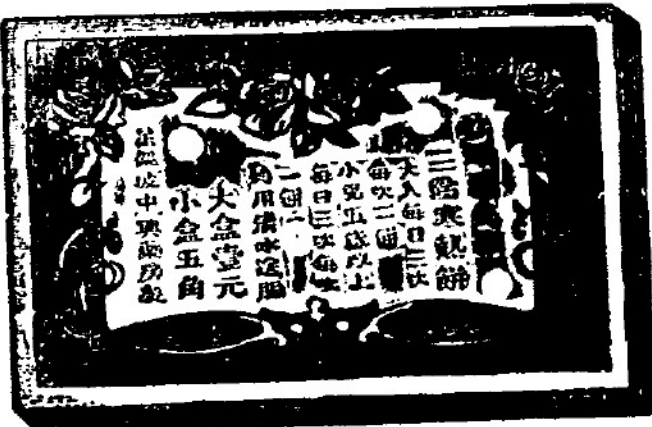 三陰寒熱餅
大人每日三次
每次二個
小兒五歲以上
每日三次每次
一個
用清水送服
大盒壹元
小盒五角
坡中興藥房製